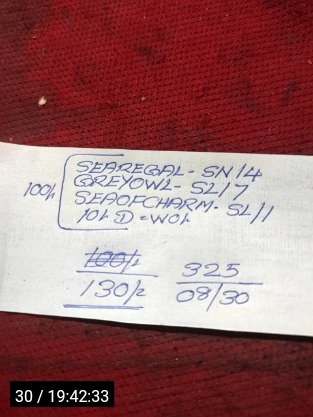 SEAREGAL - SN/4
100/- GREYOWL - SL/7
SEAOFCHARM - SL/1
10/- D = WO/-
100/-
130/2 325
08/30
30 / 19:42:33